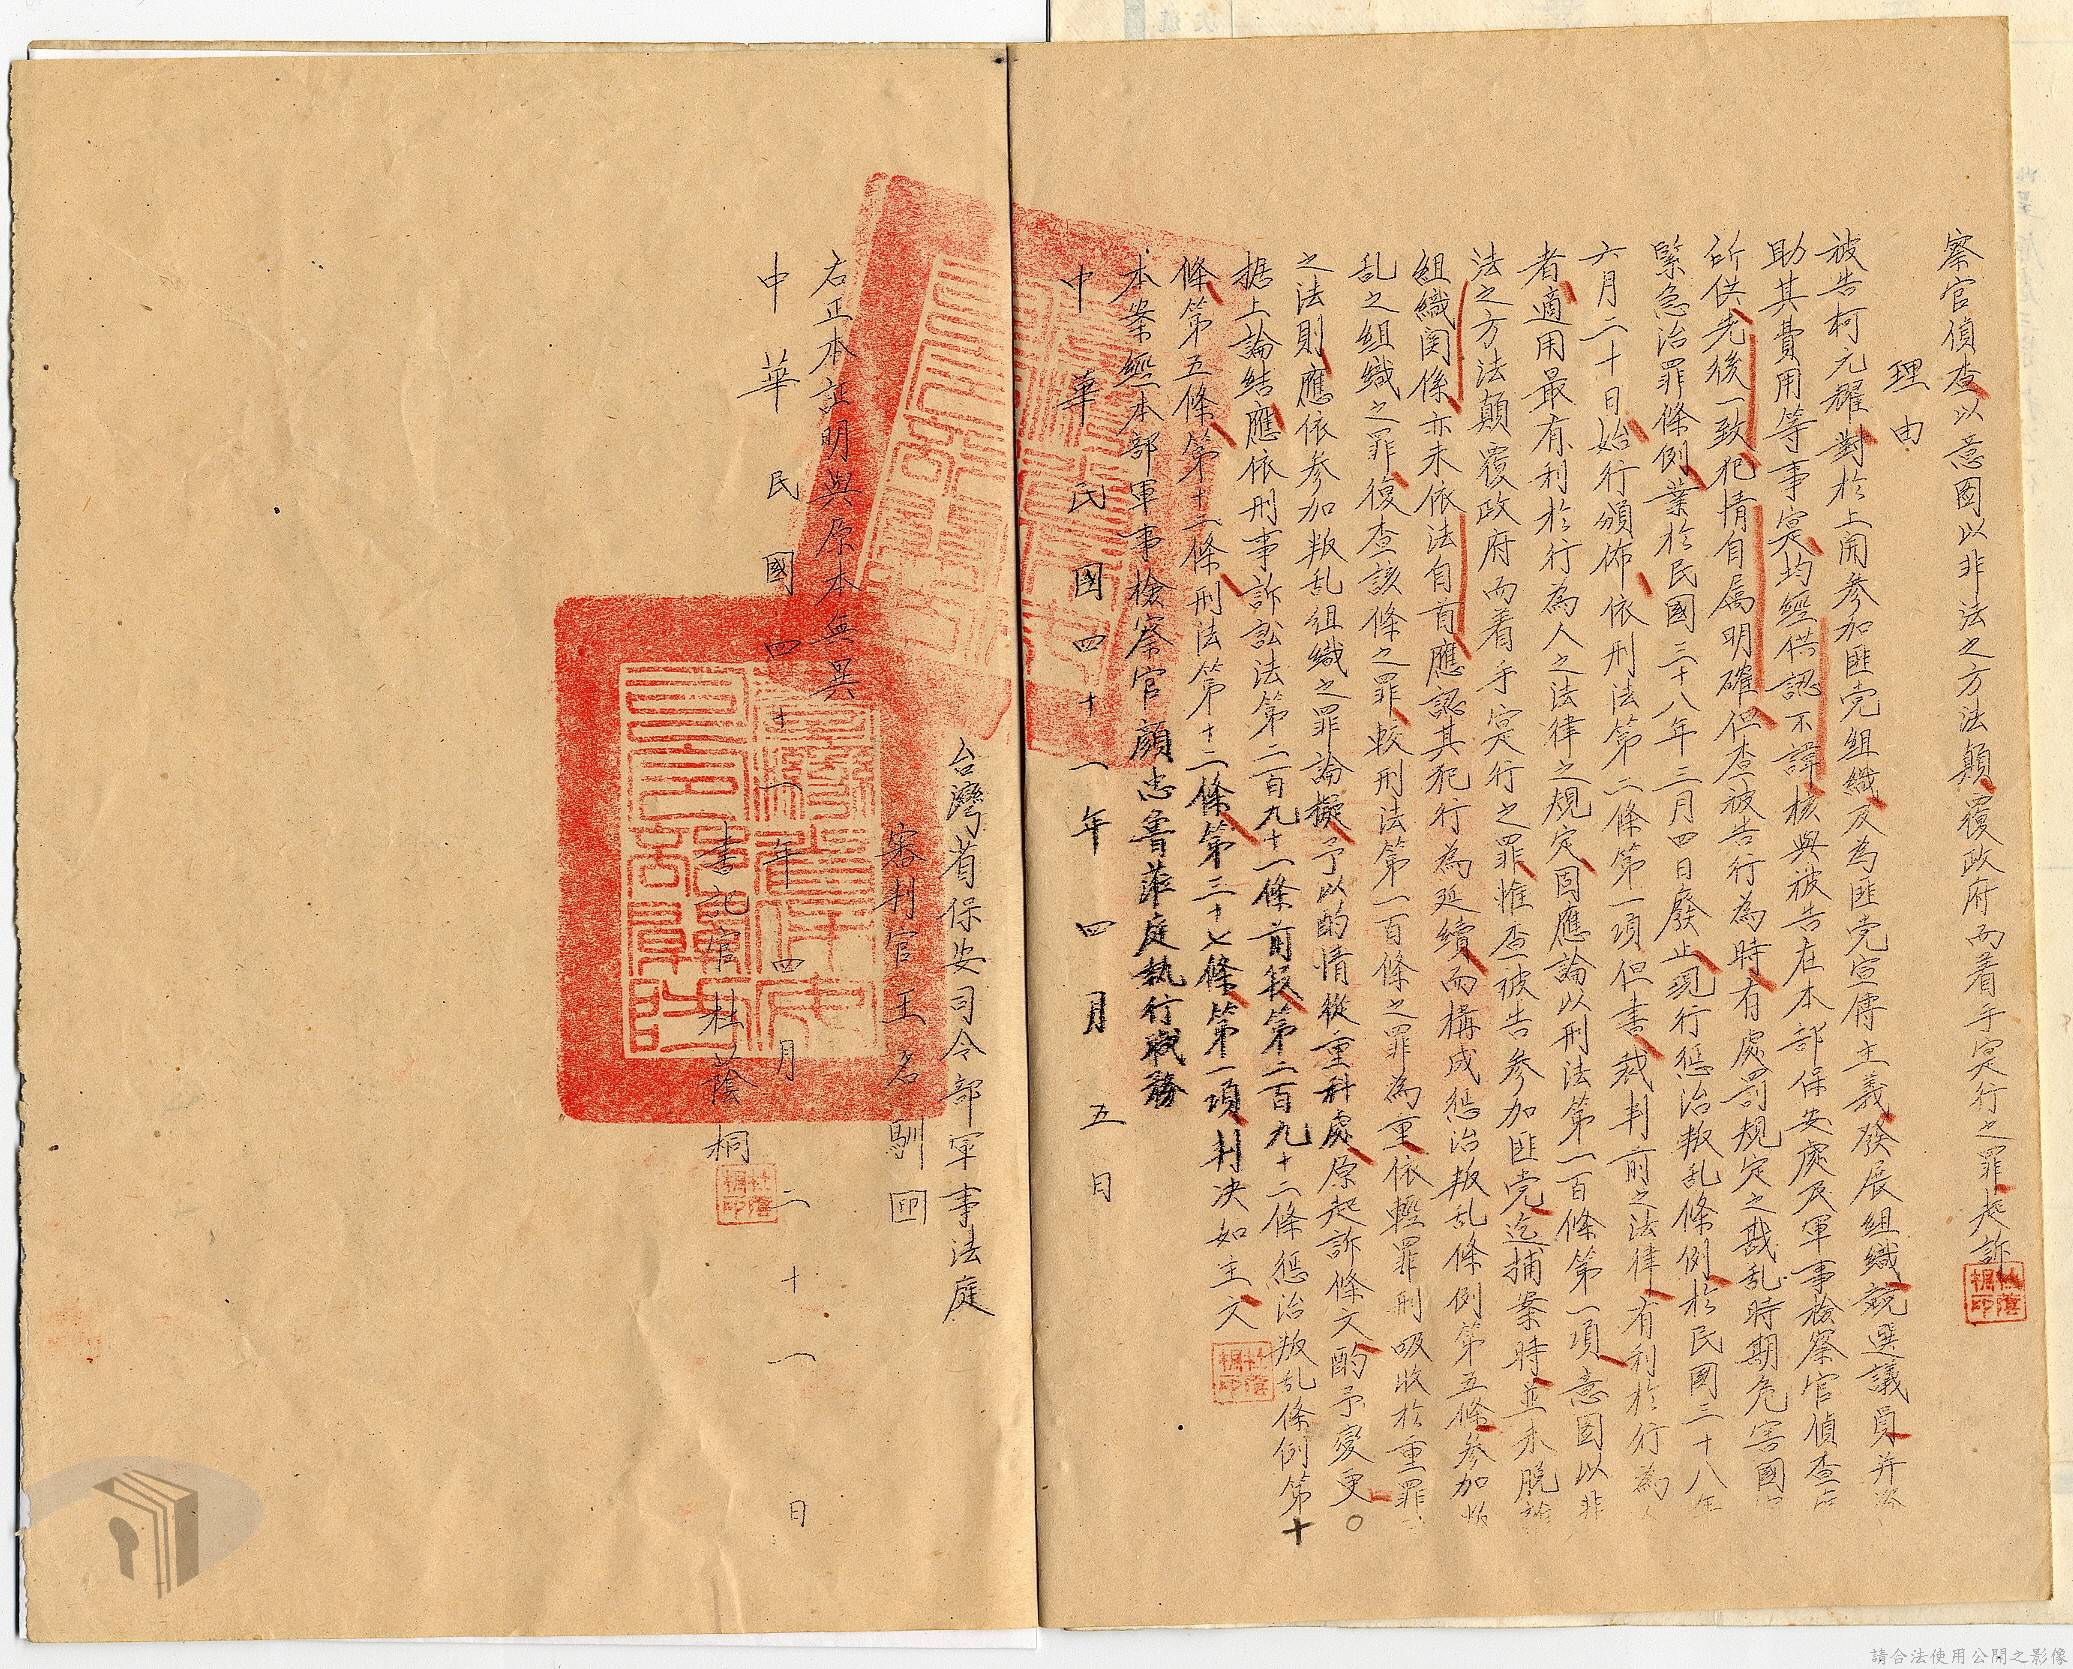 察官偵查以意圖以非法之方法顛覆政府而着手实行之罪起訴
理由
被告柯元耀對於上開參加匪党組織及為匪党宣傳主義發展組織競選議員并
助其費用等事实均經供認不諱核與被告在本部保安處及軍事檢察官偵查
所供先後一致犯情自属明確但查被告行為時有處罰規定之戡乱時期危害國
緊急治罪條例業於民國三十八年三月四日廢止現行惩治叛乱條例於民國三十八年
六月二十日始行頒佈依刑法第二條第一項但書裁判前之法律有利於行為
者適用最有利於行為人之法律之規定固應論以刑法第一百條第一項意圖以非
法之方法顛覆政府而着手实行之罪惟查被告參加匪党迄捕案時並未脫
組織関係亦未依法自首應認其犯行為延續而構成惩治叛乱條例第五條參加叛
乱之組織之罪復查該條之罪較刑法第一百條之罪為重依輕罪刑吸收於重罪
之法則應依參加叛乱組織之罪論擬予以酌情從重科處原起訴條文酌予变更。
据上論結應依刑事訴訟法第二百九十一條前段第二百九十二條惩治叛乱條例第十
條第五條第十二條刑法第十二條第三十七條第一項判决如主文
本案經本部軍事檢察官顏忠魯蒞庭執行職務
中華民國四十一年四月五日
台灣省保安司令部軍事法庭
審判官王名馴 印
右正本証明與原本無異
中華民國四十一年四月二十一日
書記官杜蔭桐